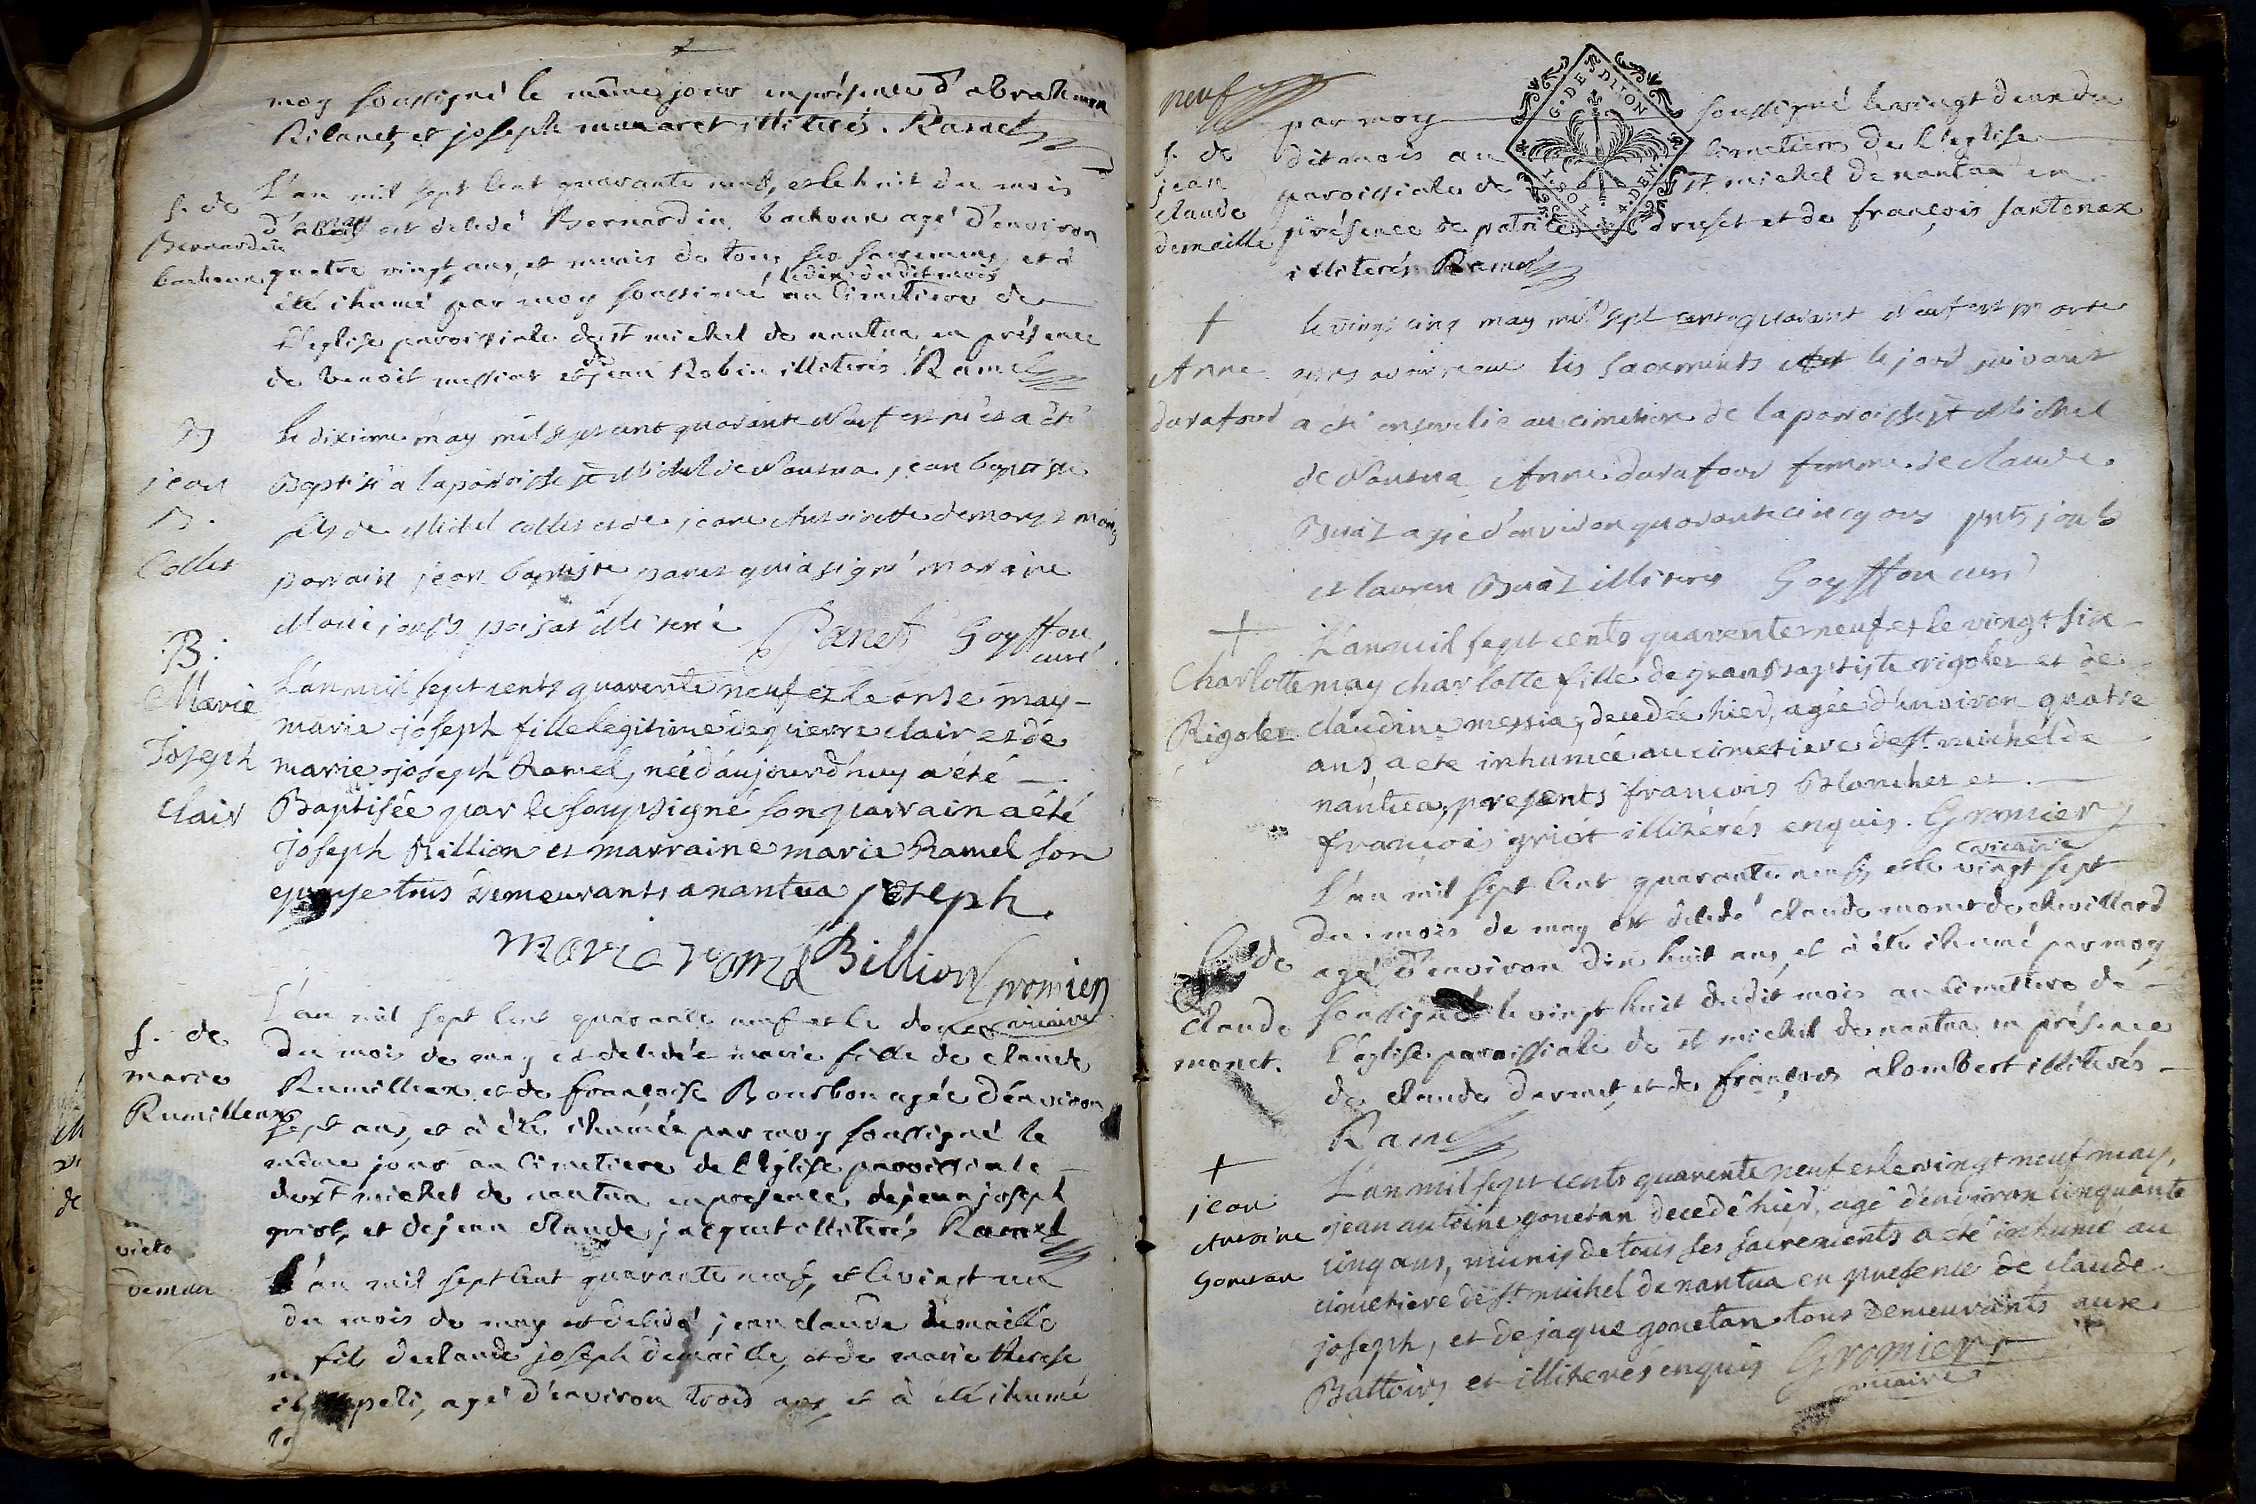 moy soussigné le même jour en présence d'abraham
Rilanet, et joseph munaret illiterés. Ramel
s. de
Bernardin
bachoux
L'an mil sept cent quarante neuf, et le huit du mois
d' may est decedé Bernardin bachoux agé d'environ
quatre vingt ans, et munis de tous ses sacremens, et à
le dix du dit mois
été ihumé par moy soussigné au Cimetiere de
L'eglise paroissiale de st michel de nantua en présence
de benoit messiat et de jean Robin illiterés. Ramel
B
jean
B.
Collet
le dixieme may mil sept cent quarante Neuf est né et a été
Baptisé a la paroisse st Michel de Nantua, jean baptiste
fils de Michel collet et de jeane Antoinette demornex mariés
parrain jean baptiste panet qui a signé maraine
illiteré Panet Goyffon
curé
B.
Marie
Joseph
Clair
L'an mil sept cents quarente neuf et le onse may
marie joseph fille legitime de pierre clair et de
marie joseph Ramel, née d'aujourd'huy a été
Baptisée par le soussigné son parrain a été
joseph Billion et marraine marie Ramel son
epouse tous demeurants a nantua joseph
marie ramel Billion Gromier
vicaire
s. de
marie
Rumilleux
L'an mil sept cent quarante neuf et le douze
du mois de may est decedée marie fille de claude
Rumilleux et de françoise Bourbon agée d'environ
sept ans, et à été ihumée par moy soussigné le
même jour au Cimetiere de l'Eglise paroissiale
de st michel de nantua en presence de jean joseph
griot, et de jean claude jacquet illiterés Ramel
L'an mil sept cent quarante neuf, et le vingt un
du mois de may est decedé jean claude demaille
fils de claude joseph demaille, et de marie therese
agé d'environ trois ans, et à été ihumé
neuf
s. de
jean
claude
demaille
par moy soussigné le vingt deux du
dit mois au cimetiere de l'eglise
paroissiale de st michel de nantua en
présence de patrice druset et de françois santonax
illiterés Ramel
G. DE DIJON
1. SOL 4. DEN.
+
Anne
durafour
le vingt cinq may mil sept cent quarant Neuf est morte
après avoir receu les sacrements et le jour suivant
a été ensevelie au cimetiere de la paroisse st Michel
de Nantua Anne durafour femme de claude
Buat agée d'environ quarante cinq ans pnts
et laurent Buat illiterés Goyffon curé
+
Charlotte
Rigolet
L'an mil sept cents quarente neuf et le vingt six
may charlotte fille de jean baptiste rigolet et de
claudine messia, decedée hier, agée d'environ quatre
ans, a été inhumée au cimetiere de st michel de
nantua, presents francois Blanchet et
françois griot illiterés enquis. Gromier
vicaire
s. de
Claude
monet.
L'an mil sept cent quarante neuf, et le vingt sept
du mois de may est decedé claude monet de chevillard
agé d'environ dix huit ans, et à été ihumé par moy
soussigné le vingt huit du dit mois au cimettiere de
L'eglise paroissiale de st michel de nantua en présence
de claude dermet, et de françois alombert illiterés
Ramel
+
jean
Antoine
gonetan
L'an mil sept cents quarente neuf et le vingt neuf may,
jean antoine gonetan decedé hier, agé d'environ cinquante
cinq ans, munis de tous ses sacrements a été inhumé au
cimetiere de st michel de nantua en presence de claude
joseph, et de jaque gonetan tous demeurants aux
Battoirs et illiterés enquis Gromier
vicaire